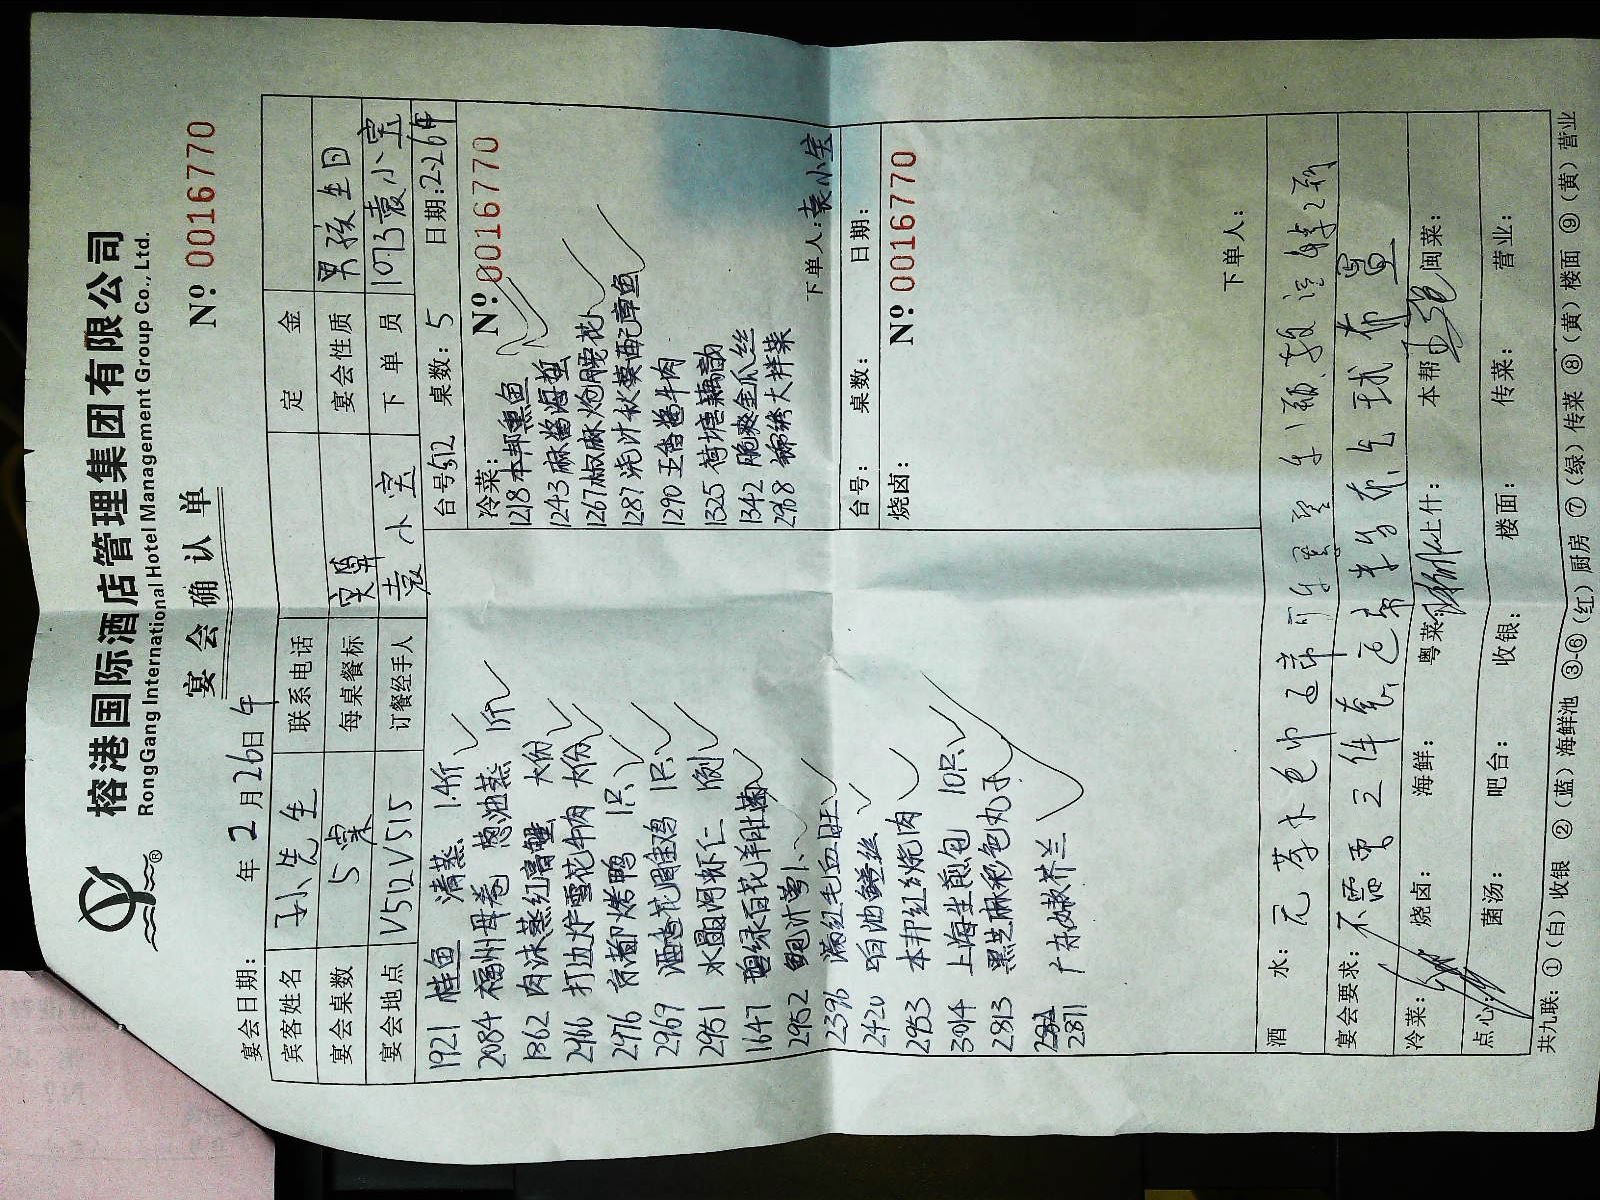 榕港国际酒店管理集团有限公司
RongGang International Hotel Management Group Co., Ltd.
宴会确认单
宴会日期： 年 2 月 26 日 午 Nº 0016770
宾客姓名 先生 联系电话 定金
宴会桌数 5桌 每桌餐标 实算 宴会性质 男孩生日
宴会地点 V512 V515 订餐经手人 袁小宝 下单员 1073袁小宝
1921 桂鱼 清蒸 1.4斤
2084 福州母卷 葱油蒸 1斤
1362 肉沫蒸红膏蟹 大份
2966 打边炉雪花牛肉 大份
2976 京都烤鸭 1只
2969 酒香花雕鸡 1只
2951 水晶河虾仁 1例
1647 碧绿百花羊肚菌
2952 鲍汁萝卜
2396 满红毛血旺
2420 响油鳝丝
2953 本邦红烧肉
3014 上海生煎包 10只
2813 黑芝麻彩色丸子
2811 广东嫩芥兰
台号：512 桌数：5 日期：2-26午
冷菜： Nº 0016770
1218 本邦熏鱼
1243 麻酱海蜇
1267 椒麻炝腰花
1287 浇汁秋葵配章鱼
1290 五香酱牛肉
1325 荷塘藕韵
1342 脆爽金瓜丝
2968 锦绣大拌菜
下单人：袁小宝
台号： 桌数： 日期：
烧卤： Nº 0016770
下单人：
酒水：
宴会要求：不需要三件套
冷菜： 烧卤： 海鲜： 粤菜： 上什： 本帮： 闽菜：
点心： 菌汤： 吧台： 收银： 楼面： 传菜： 营业：
共九联：①（白）收银 ②（蓝）海鲜池 ③-⑥（红）厨房 ⑦（绿）传菜 ⑧（黄）楼面 ⑨（黄）营业